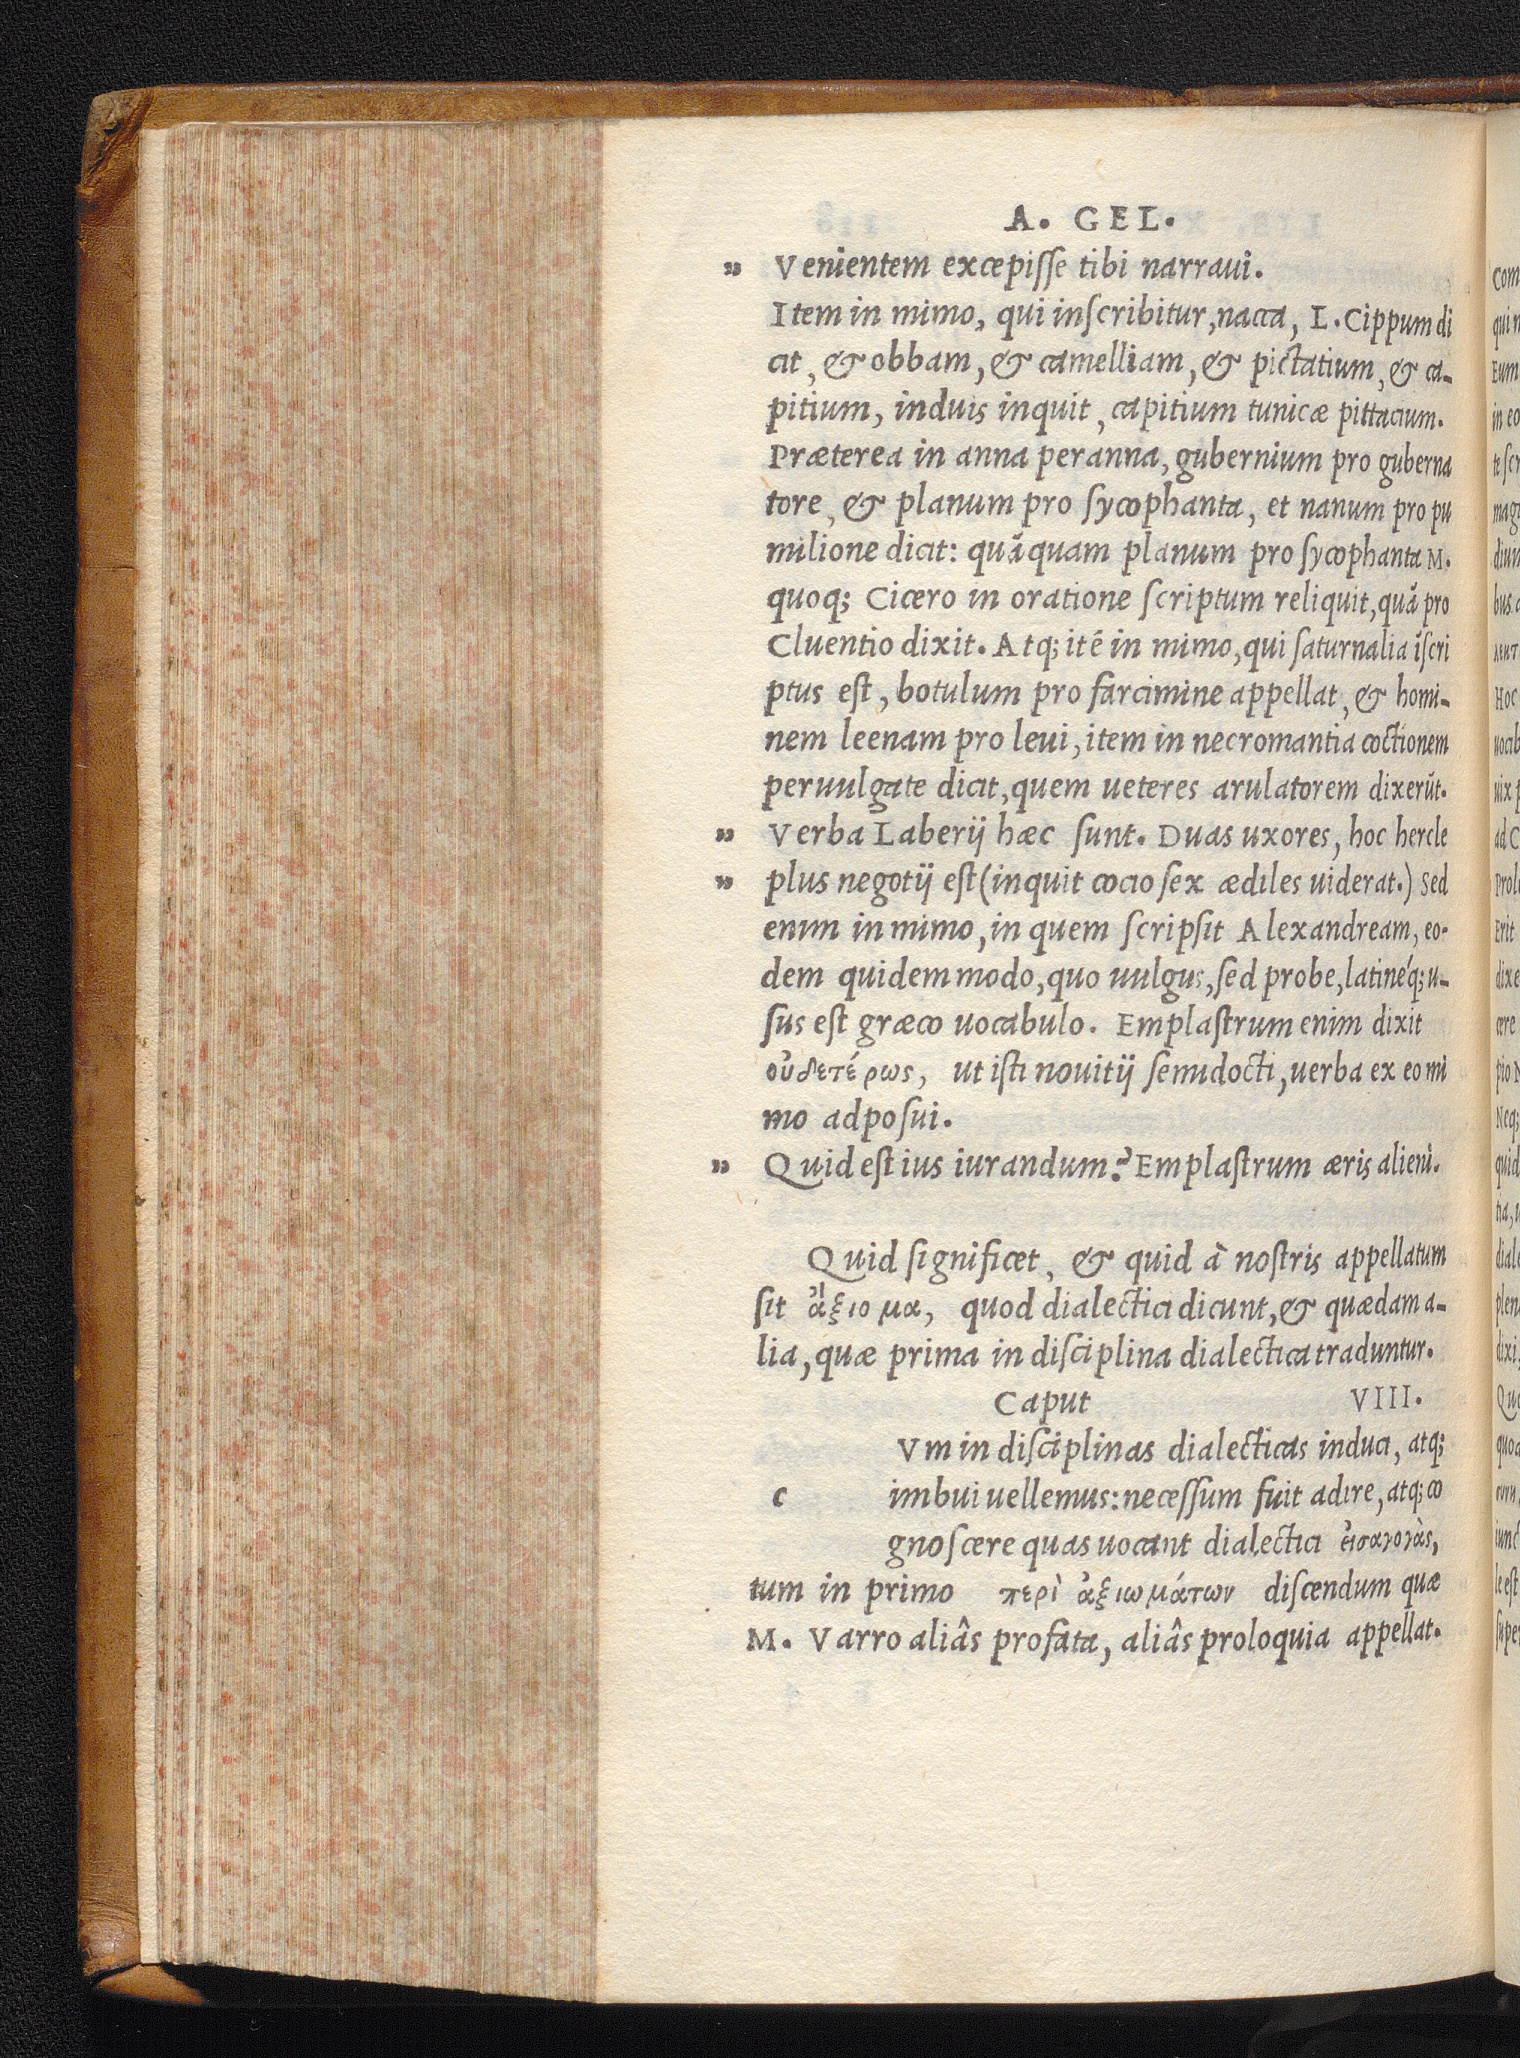 A. GEL.
" Venientem excepisse tibi narraui.
Item in mimo, qui inscribitur, nacca, L. Cippum di
cit, & obbam, & camelliam, & pictatium, & ca-
pitium, induis inquit, capitium tunicæ pittacium.
Præterea in anna peranna, gubernium pro guberna
tore, & planum pro sycophanta, et nanum pro pu
milione dicit: quāquam planum pro sycophanta M.
quoq; Cicero in oratione scriptum reliquit, quā pro
Cluentio dixit. Atq; itē in mimo, qui saturnalia īscri
ptus est, botulum pro farcimine appellat, & homi-
nem leenam pro leui, item in necromantia coctionem
peruulgate dicit, quem ueteres arulatorem dixerūt.
" Verba Laberij hæc sunt. Duas uxores, hoc hercle
" plus negotij est (inquit cocio sex ædiles uiderat.) Sed
enim in mimo, in quem scripsit Alexandream, eo-
dem quidem modo, quo uulgus, sed probe, latineq́; u-
sus est græco uocabulo. Emplastrum enim dixit
οὐδετέρως, ut isti nouitij semidocti, uerba ex eo mi
mo adposui.
" Quid est ius iurandum? Emplastrum æris alieni.
Quid significet, & quid à nostris appellatum
sit ἄξιομα, quod dialectici dicunt, & quædam a-
lia, quæ prima in disciplina dialectica traduntur.
Caput VIII.
Vm in disciplinas dialecticas induci, atq;
c imbui uellemus: necessum fuit adire, atq; co
gnoscere quas uocant dialectici εἰσαγογὰς,
tum in primo περὶ ἀξιωμάτων discendum quæ
M. Varro aliâs profata, aliâs proloquia appellat.